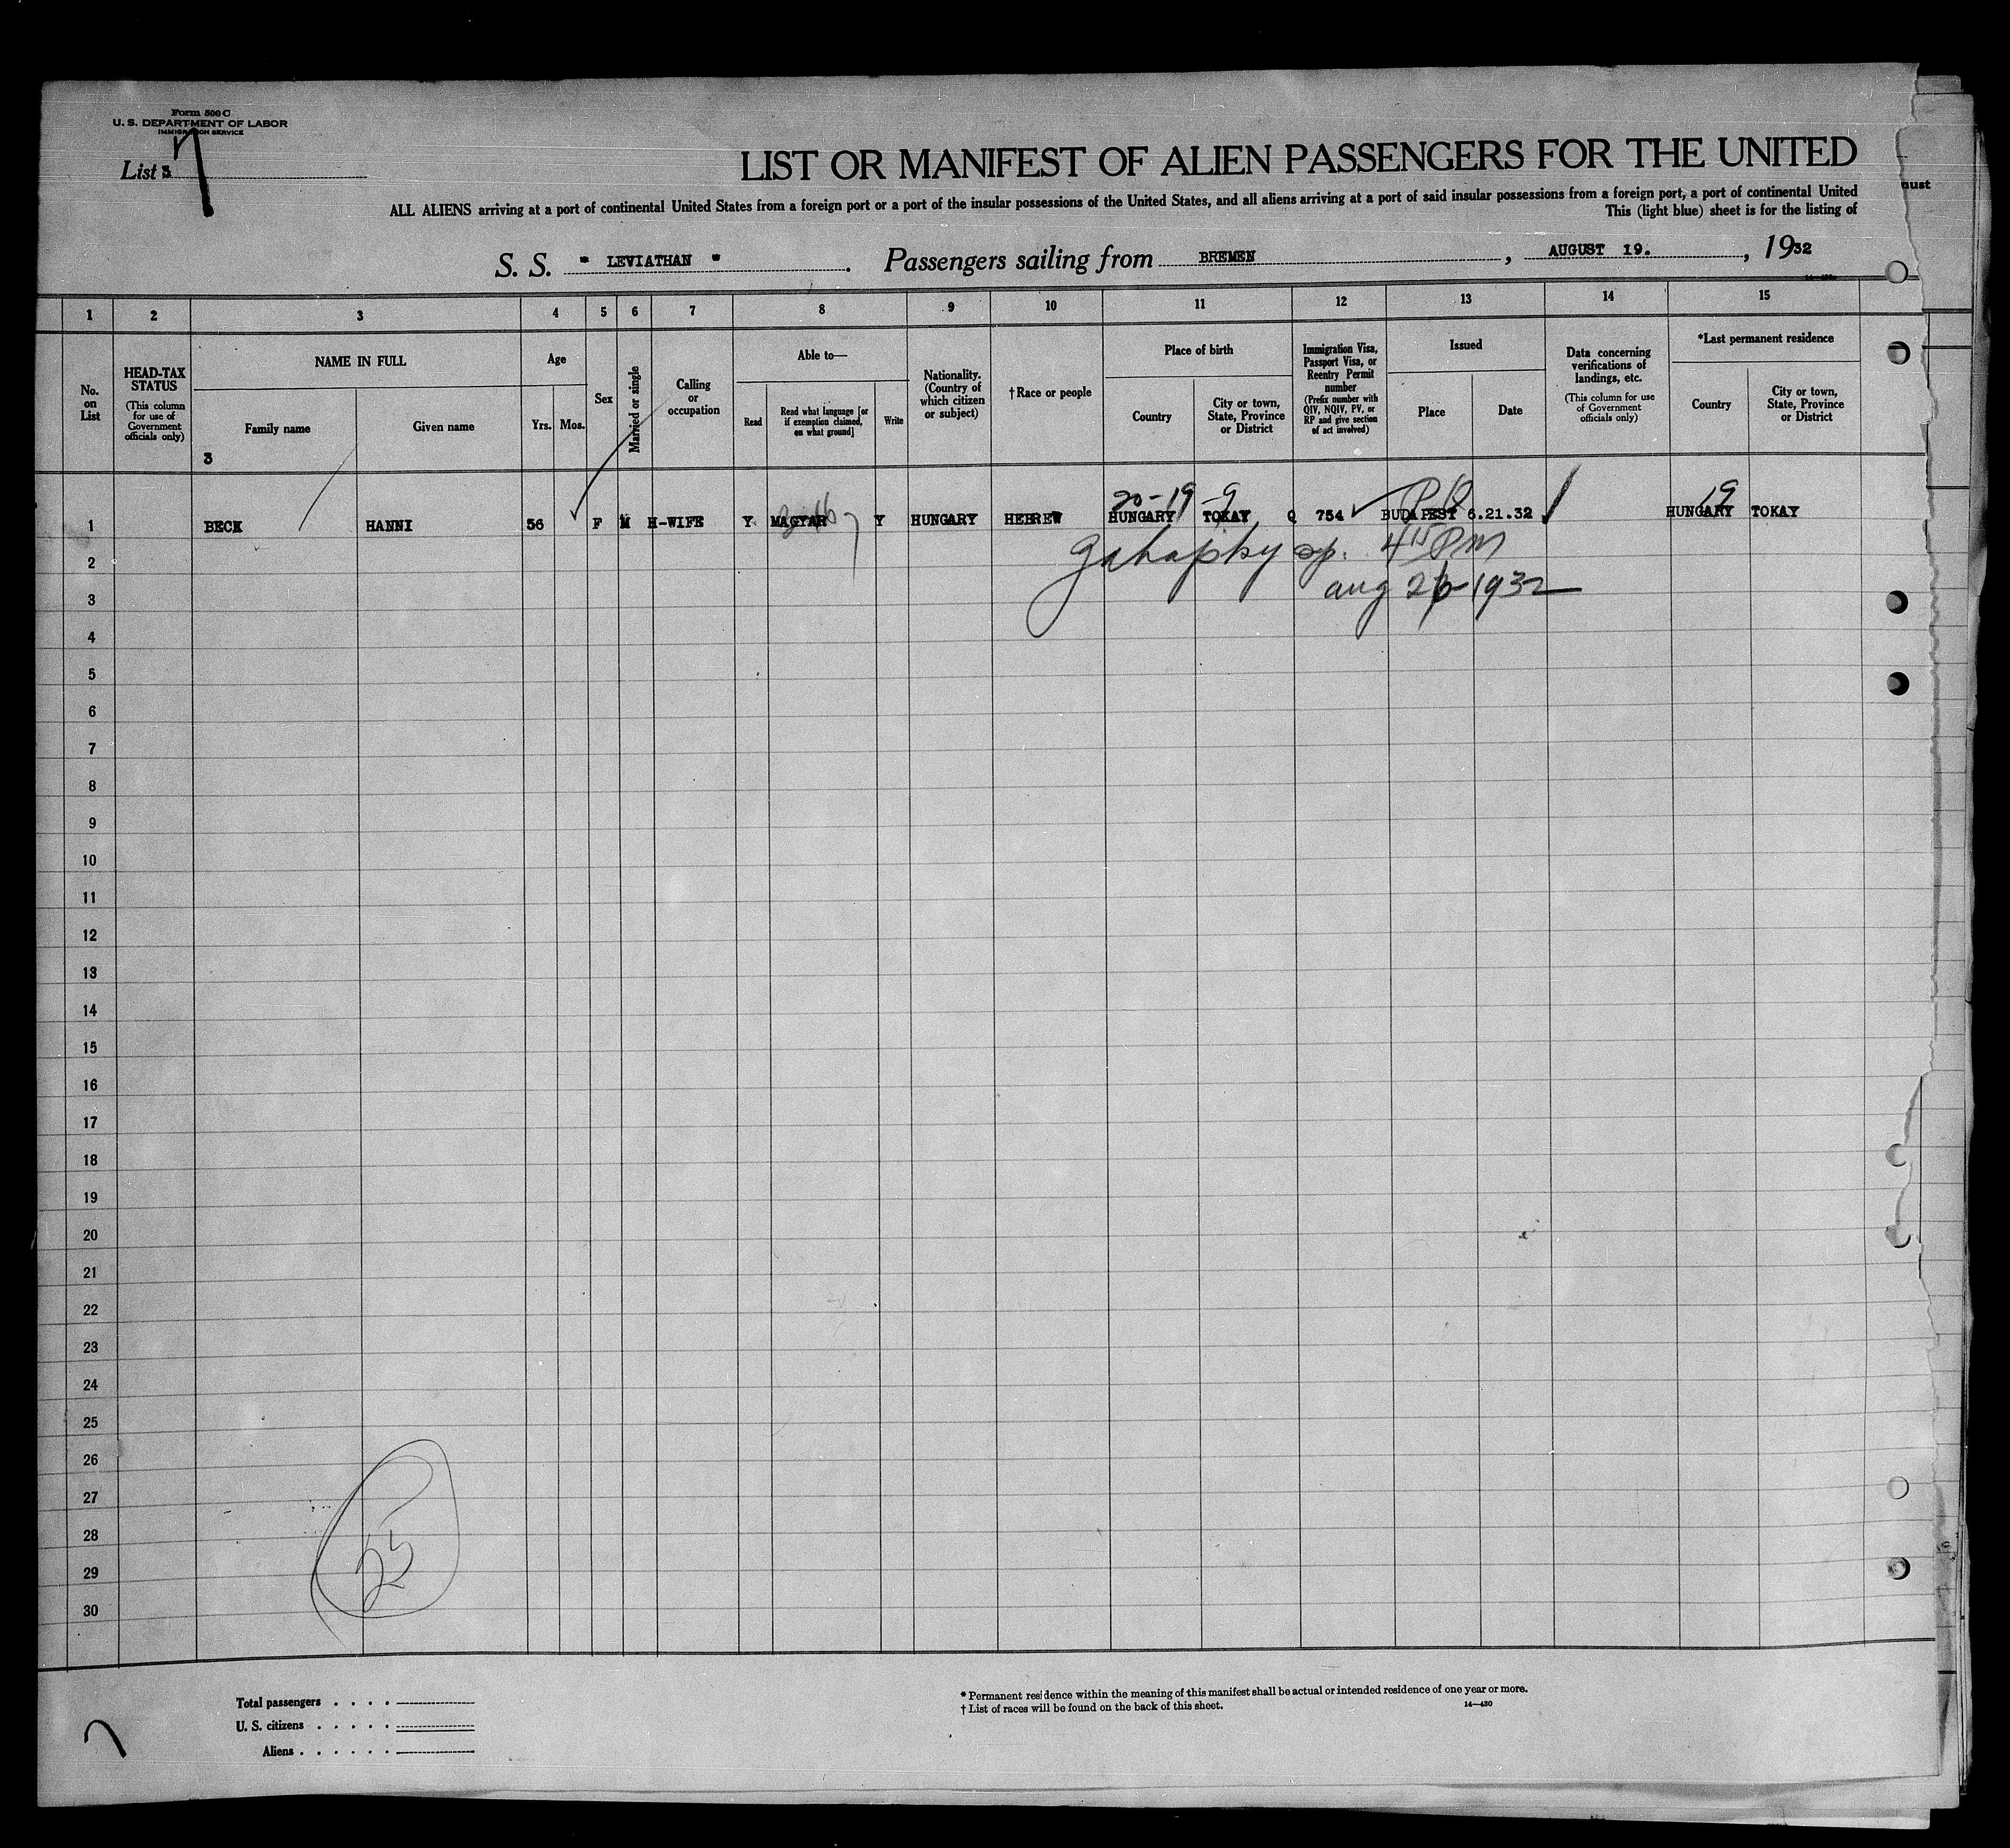 Form 500 C
U. S. DEPARTMENT OF LABOR
IMMIGRATION SERVICE
List 3 7
LIST OR MANIFEST OF ALIEN PASSENGERS FOR THE UNITED
ALL ALIENS arriving at a port of continental United States from a foreign port or a port of the insular possessions of the United States, and all aliens arriving at a port of said insular possessions from a foreign port, a port of continental United
must
This (light blue) sheet is for the listing of
S. S. " LEVIATHAN " . Passengers sailing from BREMEN , AUGUST 19. , 1932
1 2 3 4 5 6 7 8 9 10 11 12 13 14 15
No. on List
HEAD-TAX STATUS (This column for use of Government officials only)
NAME IN FULL
Family name
Given name
3
Age
Yrs. Mos.
Sex
Married or single
Calling or occupation
Able to—
Read
Read what language [or if exemption claimed, on what ground]
Write
Nationality. (Country of which citizen or subject)
†Race or people
Place of birth
Country
City or town, State, Province or District
Immigration Visa, Passport Visa, or Reentry Permit number (Prefix number with QIV, NQIV, PV, or RP and give section of act involved)
Issued
Place
Date
Data concerning verifications of landings, etc. (This column for use of Government officials only)
*Last permanent residence
Country
City or town, State, Province or District
20-19-9 19
1 BECK HANNI 56 F M H-WIFE Y MAGYAR Y HUNGARY HEBREW HUNGARY TOKAY Q 754 BUDAPEST 6.21.32 HUNGARY TOKAY
2 4 15 PM
3 aug 26 1932
4
5
6
7
8
9
10
11
12
13
14
15
16
17
18
19
20
21
22
23
24
25
26
27
28
29
30
25
Total passengers . . . .
U. S. citizens . . . . .
Aliens . . . . . .
* Permanent residence within the meaning of this manifest shall be actual or intended residence of one year or more.
† List of races will be found on the back of this sheet.
14—430
7